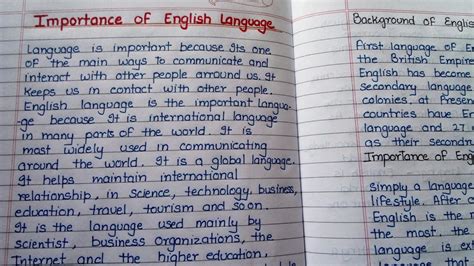 Importance of English Language
Language is important because Its one
of the main ways to communicate and
interact with other people around us. It
keeps us in contact with other people.
English language is the important langua-
ge because It is international language
in many parts of the world. It is
most widely used in communicating
around the world. It is a global language.
It helps maintain international
relationship, in science, technology, business,
education, travel, tourism and so on.
It is the language used mainly by
scientist, business organizations, the
Internet and the higher education,
Background of Englis
First language of E
the British Empire
English has become
secondary language
colonies. At Present
countries have Er
language and 27
as their secondar
Importance of En
Simply a language
lifestyle. After
English is the
the most. the
language is ex
language that